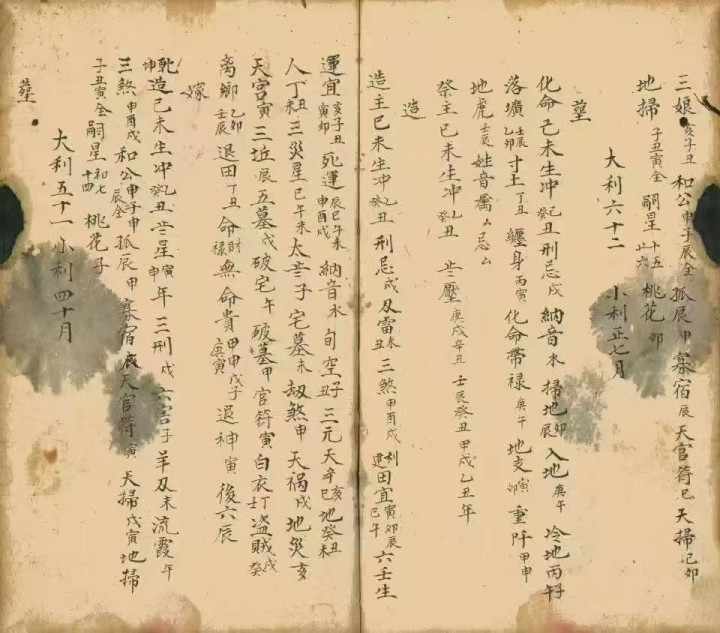 三娘亥子丑和公申子辰全孤辰申寡宿辰天官符巳天掃己卯
地掃子丑寅全嗣星十五廿六桃花卯
大利六十二小利正七月
塟
化命己未生冲癸乙丑刑忌戌納音水掃地卯辰入地庚午冷地丙午
落壙壬辰乙卯寸土丁丑纏身丙寅化命帶禄庚午地支寅卯重阡甲申
地虎壬辰姓音屬厶忌厶
祭主巳未生冲癸乙丑𡵯壓庚戌辛丑壬辰癸丑甲戌乙丑年
造
造主巳未生冲癸乙丑刑忌戌及雷未丑三煞申酉戌利建田宜寅卯辰巳午六壬生
運宜亥子丑寅卯死運辰巳午未申酉戌納音水旬空子丑三元天辛亥巳地癸丑未
人丁丑未三災星巳午未太𡵯子宅墓未劫煞申天禍戌地災亥
天官寅三坵辰五墓戌破宅午破墓甲官符寅白衣壬丁盗賊戌癸
离鄉乙卯壬辰退田丁丑命財禄無命貴甲申戊子庚寅退神寅後六辰
嫁
乾坤造己未生冲癸乙丑𡵯星寅申年三刑戌六害子羊刃未流霞午
三煞申酉戌和公申子辰全孤辰申寡宿辰天官符寅天掃戊寅地掃
子丑寅全嗣星初七十四桃花子
大利五十一小利四十月
塟